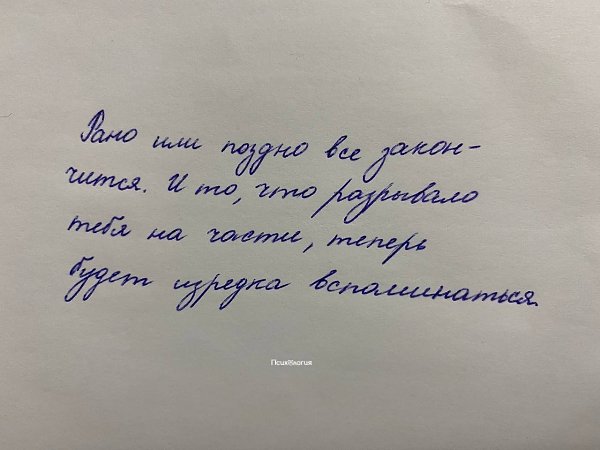 Рано или поздно все закон-
чится. И то, что разрывало
тебя на части, теперь
будет изредка вспоминаться.
Психология